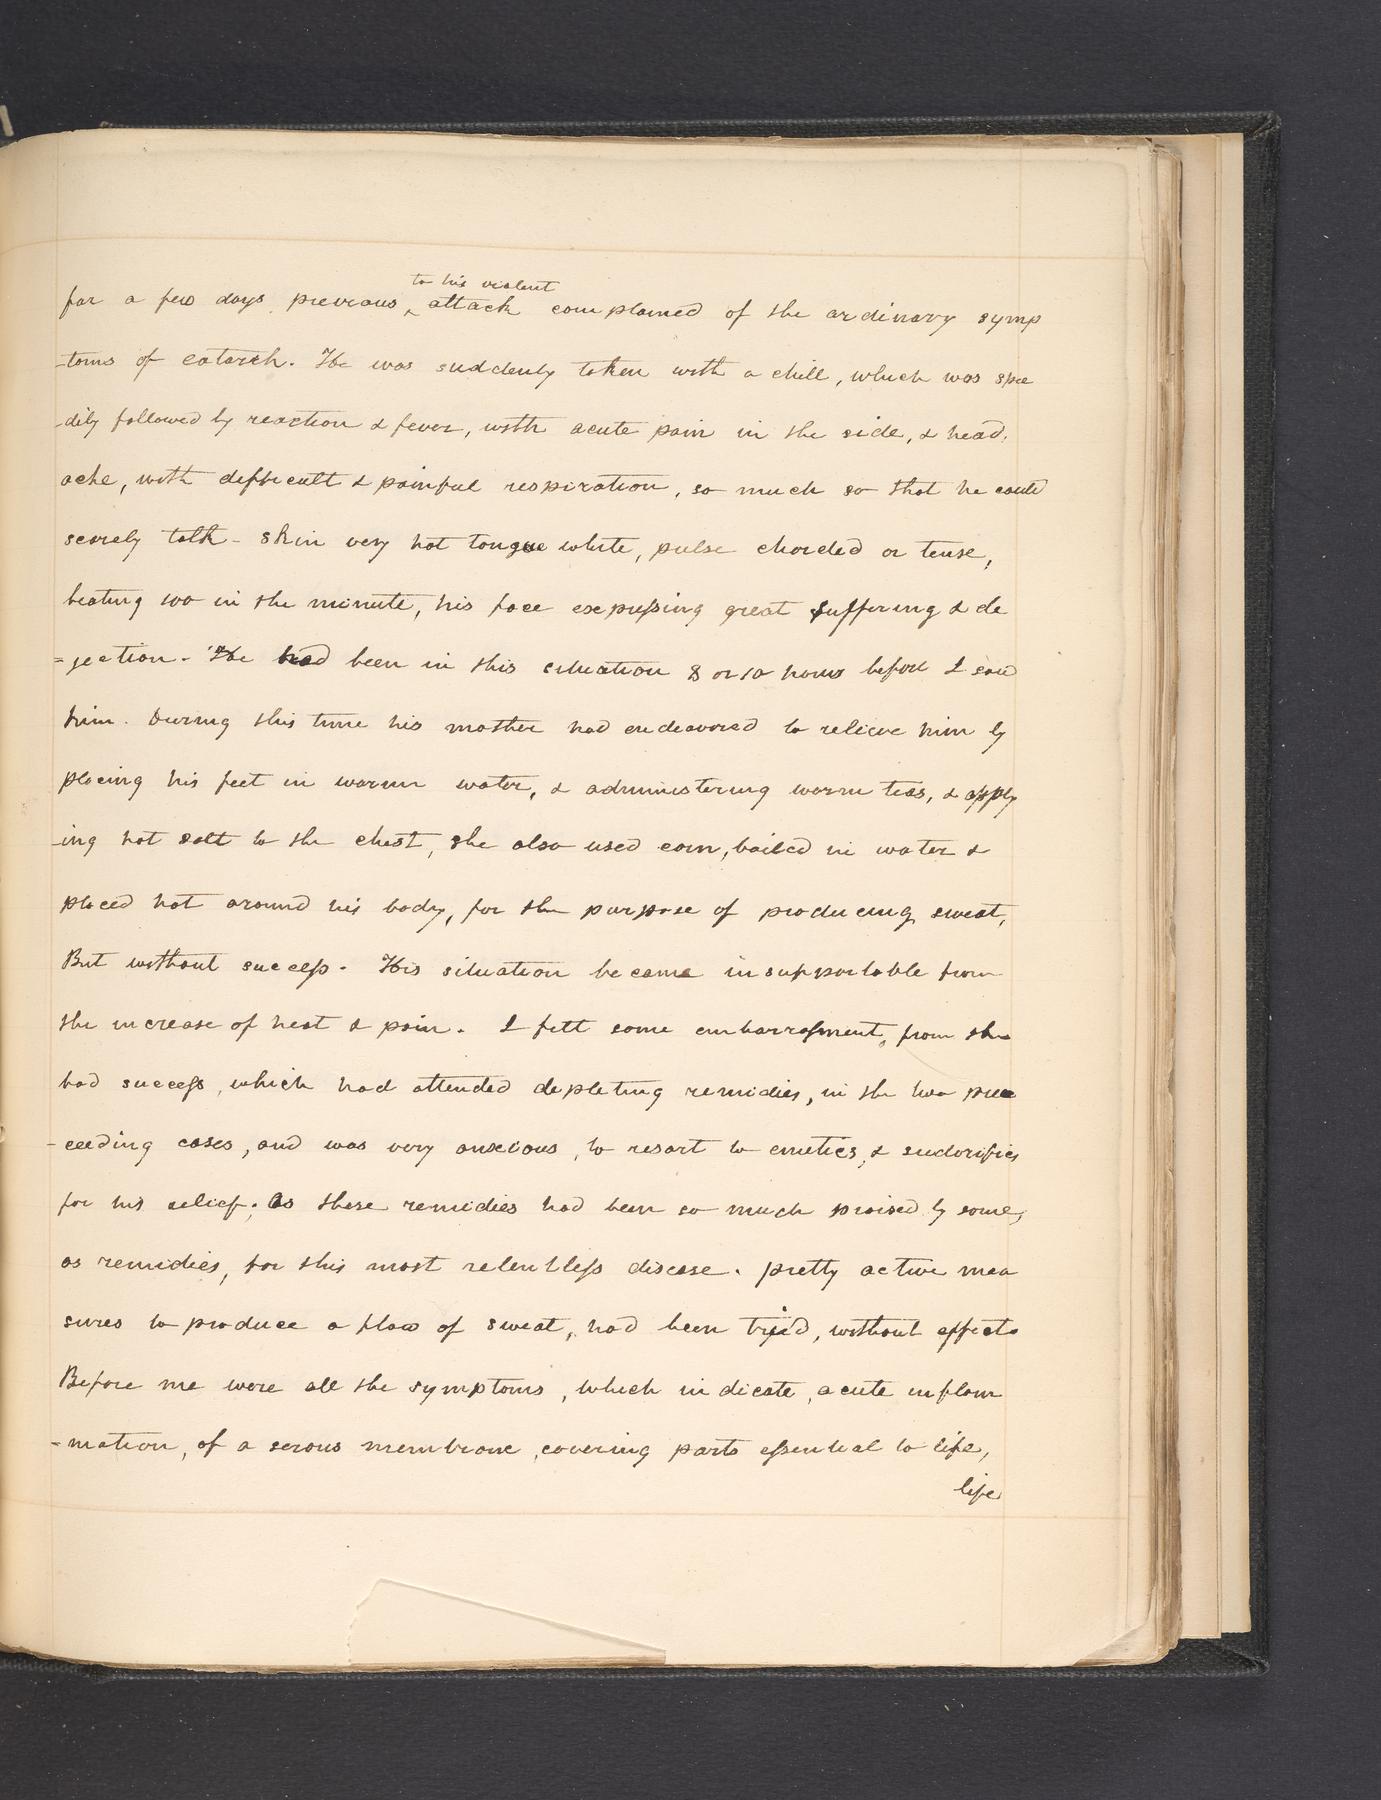 for a few days, previous, ^ to his violent attack complained of the ordinary symp
-toms of catarrh. He was suddenly taken with a chill, which was spee
-dily followed by reaction & fever, with acute pain in the side, & head,
ache, with difficult & painful respiration, so much so that he could
scarely talk - skin very hot tongue white, pulse chorded or tense,
beating 100 in the minute, his face expressing great suffering & de
=jection. He had been in this situation 8 or 10 hours before I saw
him. During this time his mother had endeavored to relieve him by
placing his feet in warm water, & administering warm teas, & apply
-ing hot salt to the chest, she also used corn, boiled in water &
placed hot around his body, for the purpose of producing sweat,
But without success. His situation became insupportable from
the increase of heat & pain. I felt some embarrassment, from the
bad success, which had attended depleting remidies, in the two prec
-ceeding cases, and was very anxious, to resort to emetics, & sudorifics
for his relief; As these remidies had been so much praised by some,
as remidies, for this most relentless disease. pretty active mea
sures to produce a flow of sweat, had been tryi'd, without effect.
Before me were all the symptoms, which indicate, acute inflam
-mation, of a serous membrane, covering parts essential to life,
life